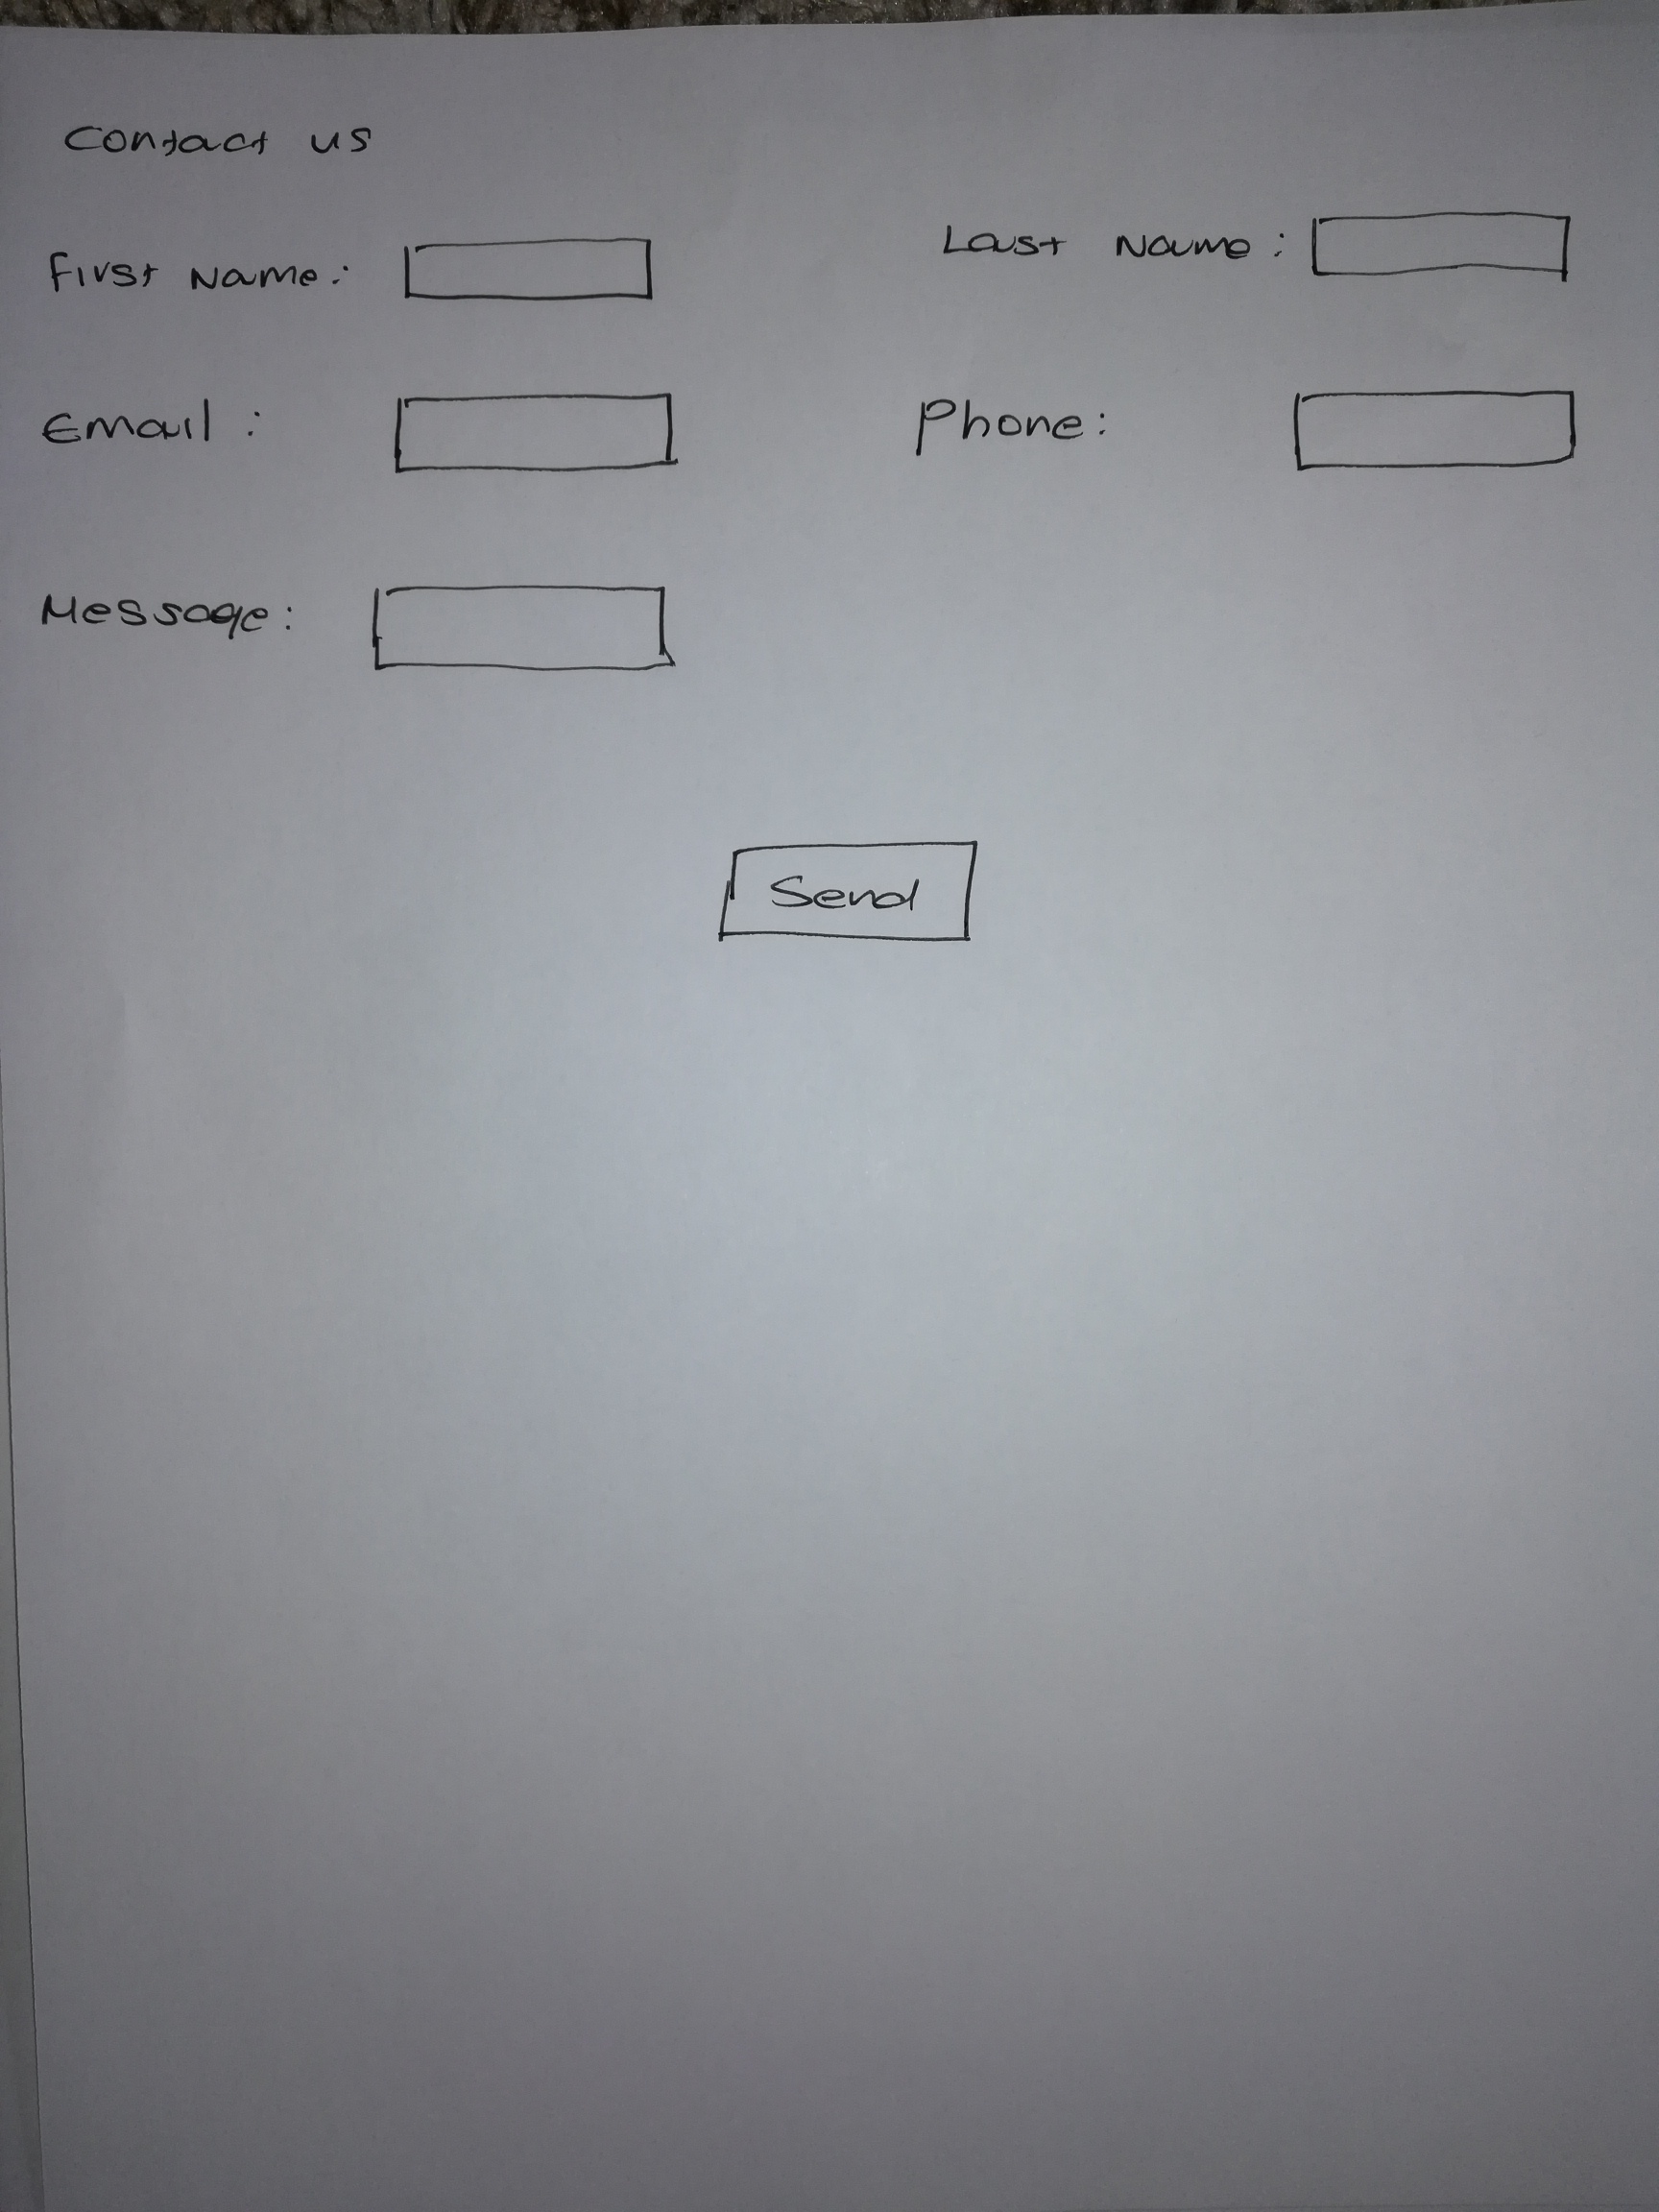 Contact us
First Name: Last Name:
Email: Phone:
Message:
Send